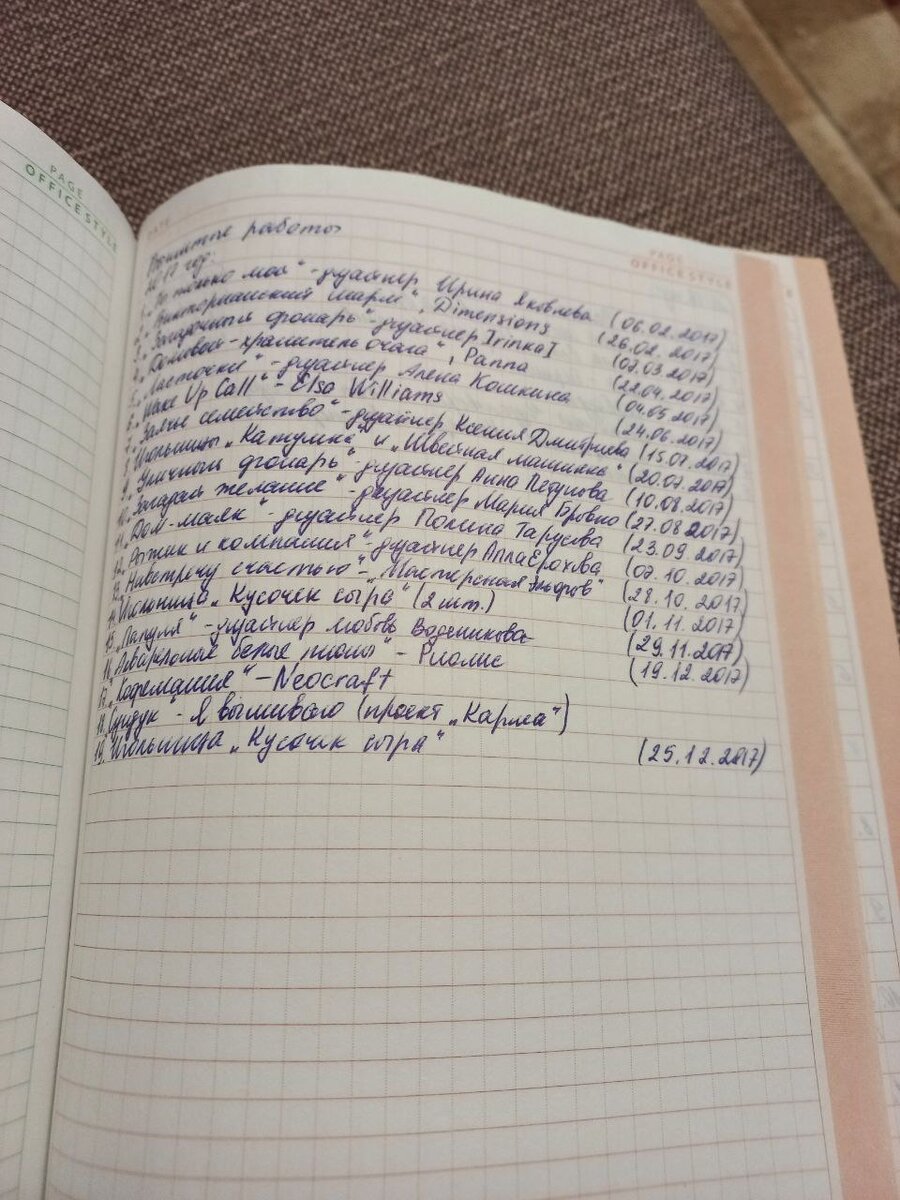 PAGE
OFFICE STYLE
PAGE
OFFICE STYLE
Вышитые работы
2017 год:
только моя" - дизайнер Ирина Яковлева (06.02.2017)
2. "Викторианский шарм", Dimensions (26.02.2017)
3. "Загадочный фонарь" - дизайнер IrinkaI (07.03.2017)
4. "Домовой - хранитель очага", Panna (22.04.2017)
5. "Ласточки" - дизайнер Алёна Кошкина (04.05.2017)
6. "Wake Up Call" - Elsa Williams (24.06.2017)
7. "Заячье семейство" - дизайнер Ксения Дмитриева (15.07.2017)
8. Игольницы "Катушка" и "Швейная машинка" (20.07.2017)
9. "Уличный фонарь" - дизайнер Анна Петунова (10.08.2017)
10. "Загадай желание" - дизайнер Мария Бровко (27.08.2017)
11. "Дом-маяк" - дизайнер Полина Тарусова (23.09.2017)
12. "Рыжик и компания" - дизайнер Алла Ерохова (07.10.2017)
13. "Навстречу счастью" - "Мастерская эльфов" (28.10.2017)
14. Игольница "Кусочек сыра" (2 шт.) (01.11.2017)
15. "Папуля" - дизайнер Любовь Воденикова (29.11.2017)
16. "Акварельные белые пионы" - Риолис (19.12.2017)
17. "Кофемания" - Neocraft
18. Сундук - Я вышиваю (проект "Карма")
19. Игольница "Кусочек сыра" (25.12.2017)